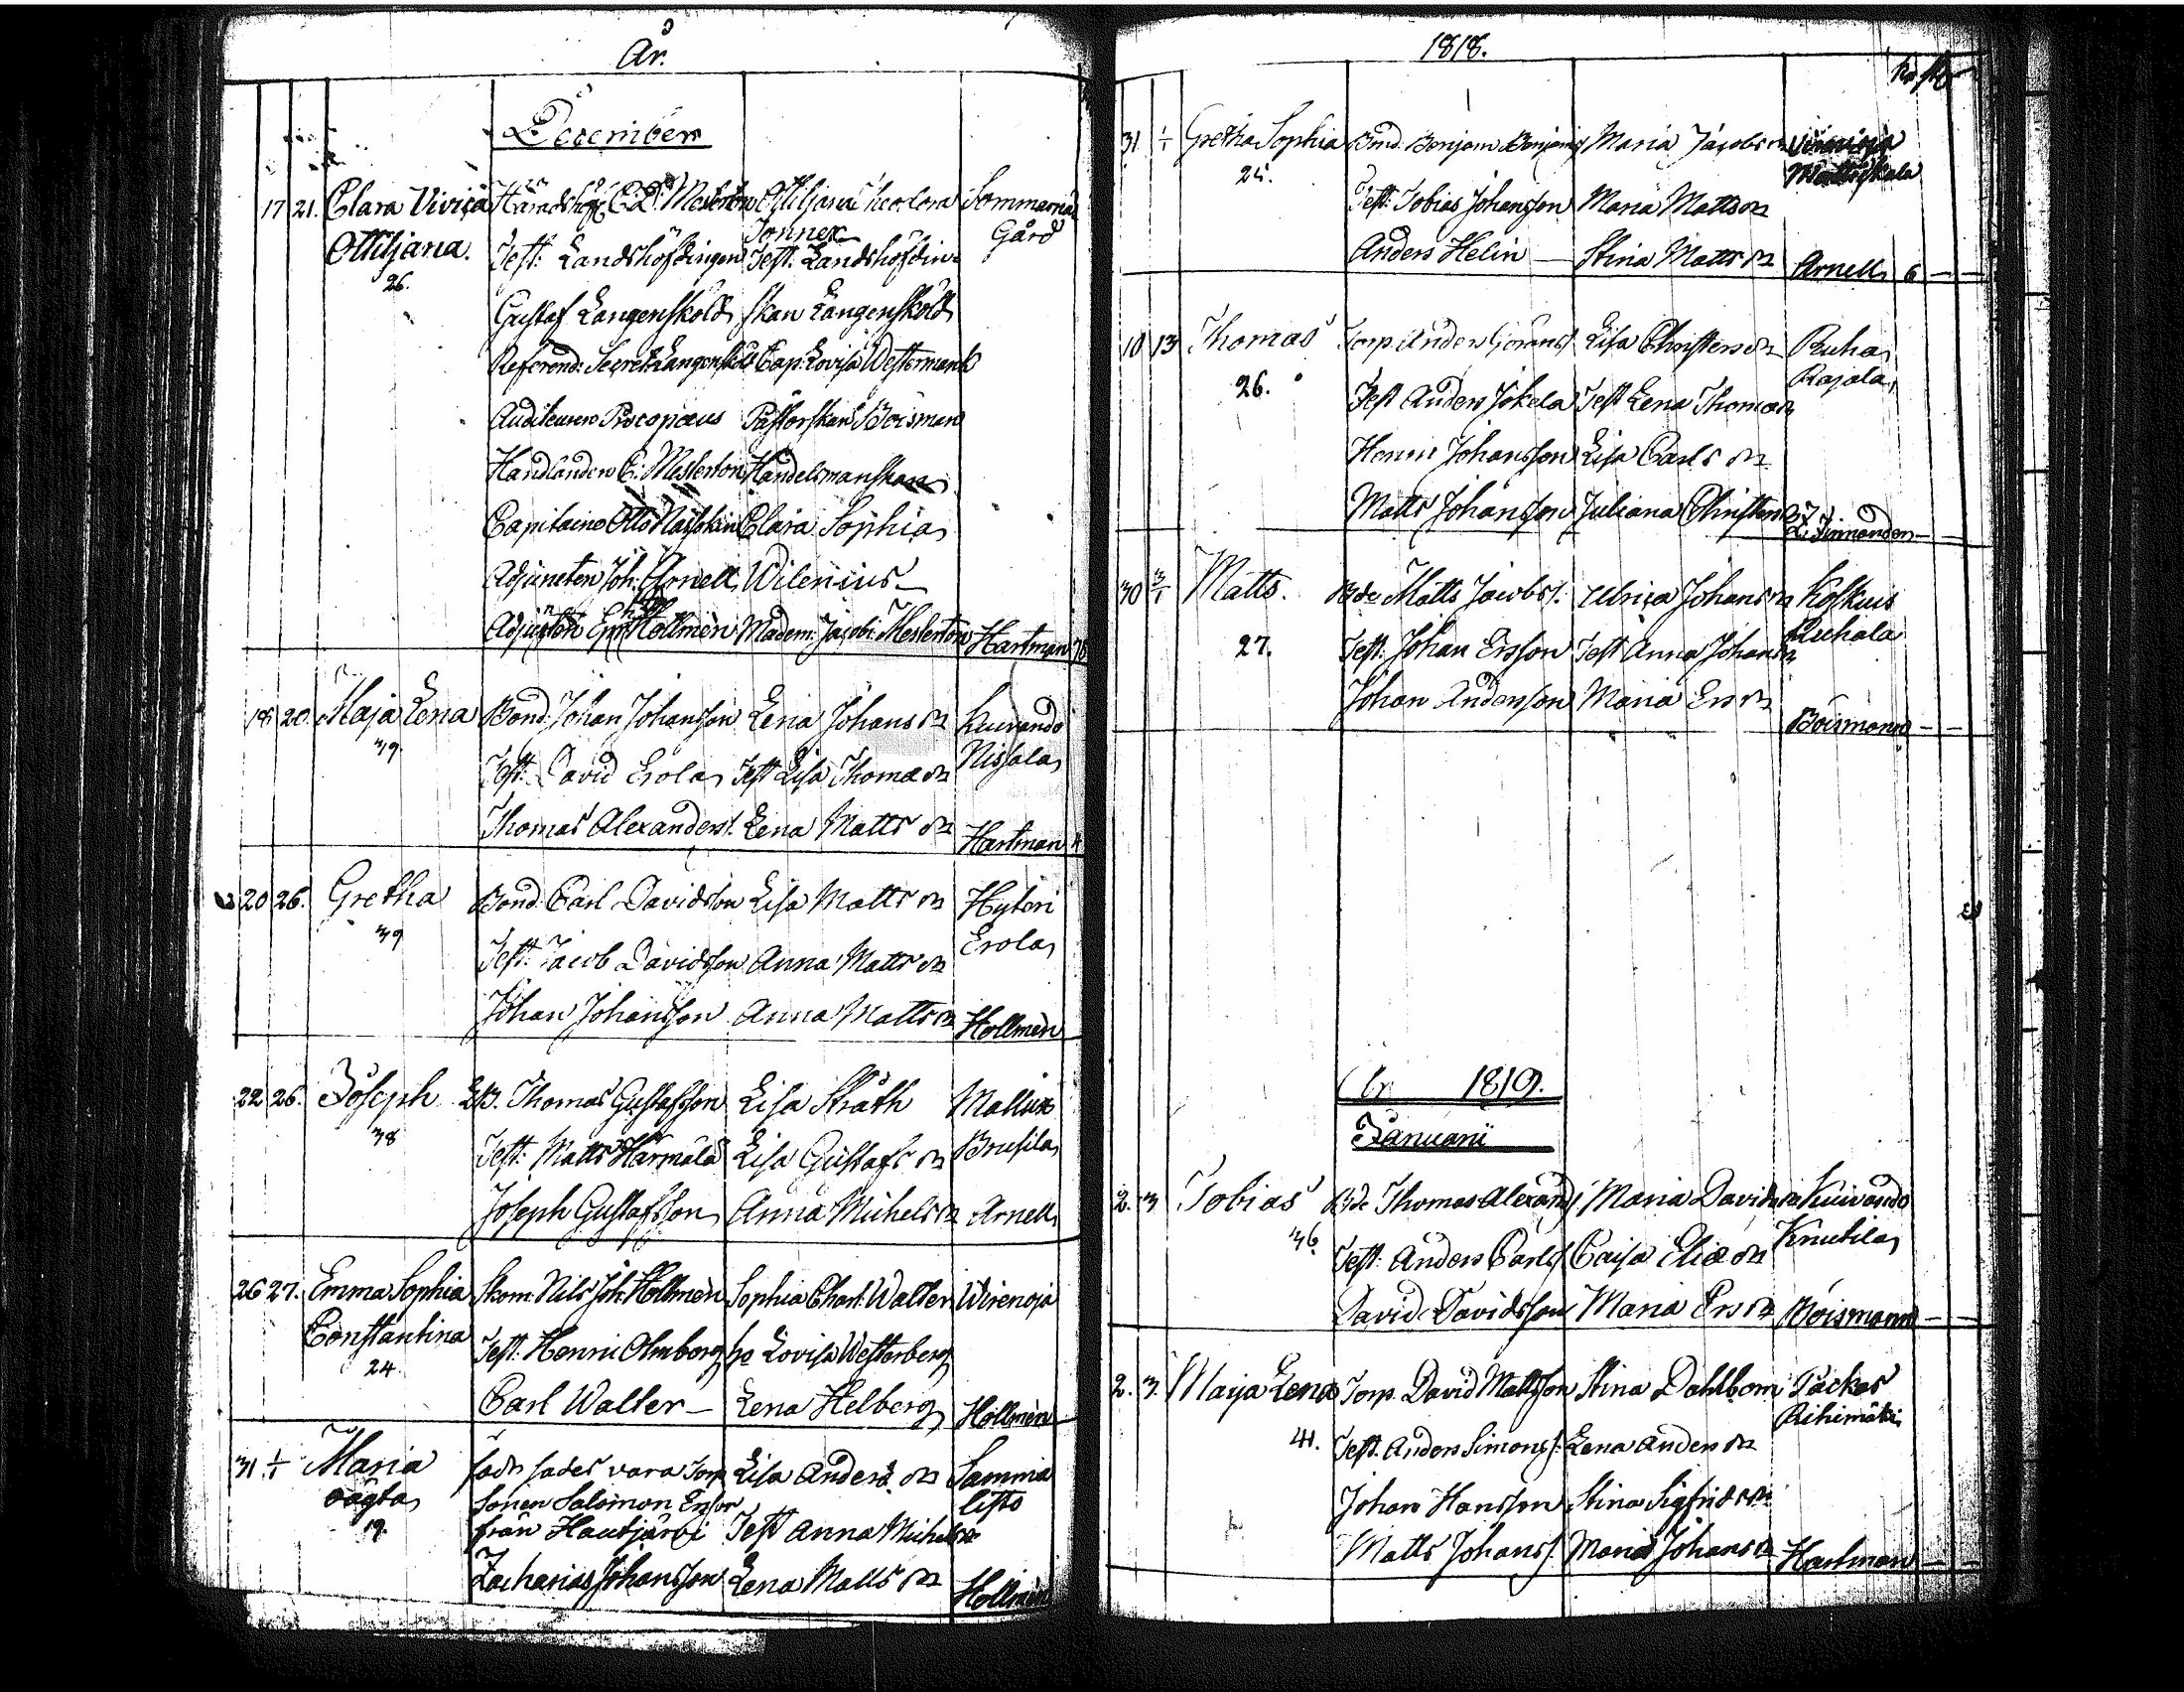 År.
December
17 21. Clara Vivica Häradshöfd. C. D. Mesterton Ottiljana Theodora Sommarnäs
Ottiljana. Gård
26. Test: Landshöfdingen Test. Landshöfdin-
Gustaf Langenskold skan Langenskold
Referend: Secret: Langenskold Cap: Lovisa Westermark
Auditeuren Procopæus Pastorskan Boisman
Handlanden C: Mesterton Handelsmanskan
Capitaine Otto Clara Sophia
Adjuncten Joh: Arnell Wilenius
Adjuncten Hollmèn Madem: Jacobi: Mesterton Hartman
18 20. Maja Lena Bond: Johan Johansson Lena Johans dr Kuivando
39. Test. David Erola Test Lisa Thomæ dr Nissala
Thomas Alexanders. Lena Matts dr Hartman
20 26. Gretha Bond. Carl Davidsson Lisa Matts dr Hyteri
39 Test. Jacob Davidsson Anna Matts dr Erola
Johan Johansson Anna Matts dr Hollmèn
22 26. Joseph Thomas Gustafsson Lisa Stråth Mallux
38 Test: Matts Härmälä Lisa Gustafs dr Brusila
Joseph Gustafsson Anna Michels dr Arnell
26 27. Emma Sophia Skom. Nils Joh. Hollmèn Sophia Charl. Walter Wirenoja
Constantina Test. Henric Olmberg Lovisa Westerberg
24. Carl Walter Lena Helberg Hollmèn
31 1/1 Maria fadr sades vara Torp Lisa Anders dr Sammia
oägta sonen Salomon Ersson listo
19. från Hautjärvi Test Anna Michels dr
Zacharias Johansson Lena Matts dr Hollmèn
1818.
31 1/1 Gretha Sophia Bond. Benjam Benjams Maria Jacobs dr
25. Test: Tobias Johansson Maria Matts dr
Anders Helin Stina Matts dr Arnell 6
10 13 Thomas Torp. Anders Görans. Lisa Christers dr Ruha
26. Test Anders Jokela Test Lena Thomæ dr Rajala
Henric Johansson Lisa Carls dr
Matts Johansson Juliana Christers dr
30 3/1 Matts. Bde Matts Jacobs. Ulrica Johans dr Koskuis
27. Test. Johan Ersson Test Anna Johans dr Ruhala
Johan Andersson Maria Ers dr Boisman
År 1819.
Januarii
2. 3 Tobias Bde Thomas Alexand. Maria Davids dr Kuivando
36. Test. Anders Carls. Caisa Eliæ dr Knutila
David Davidsson Maria Ers dr Boisman
2. 3. Maija Lena Torp. David Mattsson Stina Dahlbom Packas
41. Test. Anders Simons. Lena Anders dr Rihimäki
Johan Hansson Stina Sigfrids dr
Matts Johans. Maria Johans dr Hartman